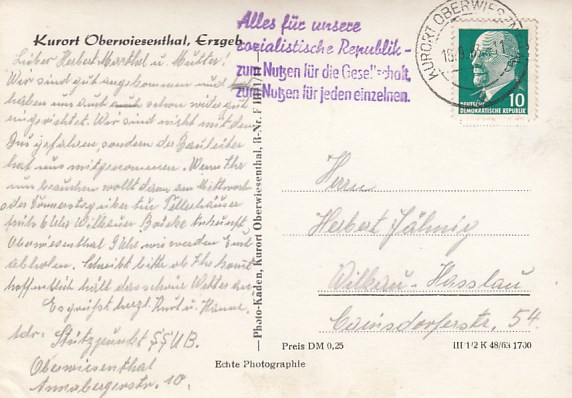 Kurort Oberwiesenthal, Erzgeb.
Lieber Herbert Marthel u. Mutter!
Wir sind gut angekommen und
haben uns auch schon wieder gut
eingerichtet. Wir sind nicht mit dem
Bus gefahren sondern der Bauleiter
hat uns mitgenommen. Wenn Ihr
uns besuchen wollt dann am Mittwoch
oder Donnerstag
früh 6 Uhr Wilkauer Brücke Ankunft
Oberwiesenthal 9 Uhr wir werden Euch
abholen. Schreibt bitte ob Ihr kommt
hoffentlich hält das schöne Wetter an.
Es grüsst herzl. Kurt u. Hanne.
Adr: Stützpunkt SSUB.
Oberwiesenthal
Annabergerstr. 10.
Photo-Kaden, Kurort Oberwiesenthal, R-Nr. F
Alles für unsere
sozialistische Republik –
zum Nutzen für die Gesellschaft,
zum Nutzen für jeden einzelnen.
KURORT OBERWIESENTHAL
DEUTSCHE
DEMOKRATISCHE REPUBLIK
10
Herrn
Herbert Jähnig
Wilkau-Hasslau
Cainsdorferstr. 54.
Preis DM 0,25
III 1/2 K 48/63 1730
Echte Photographie